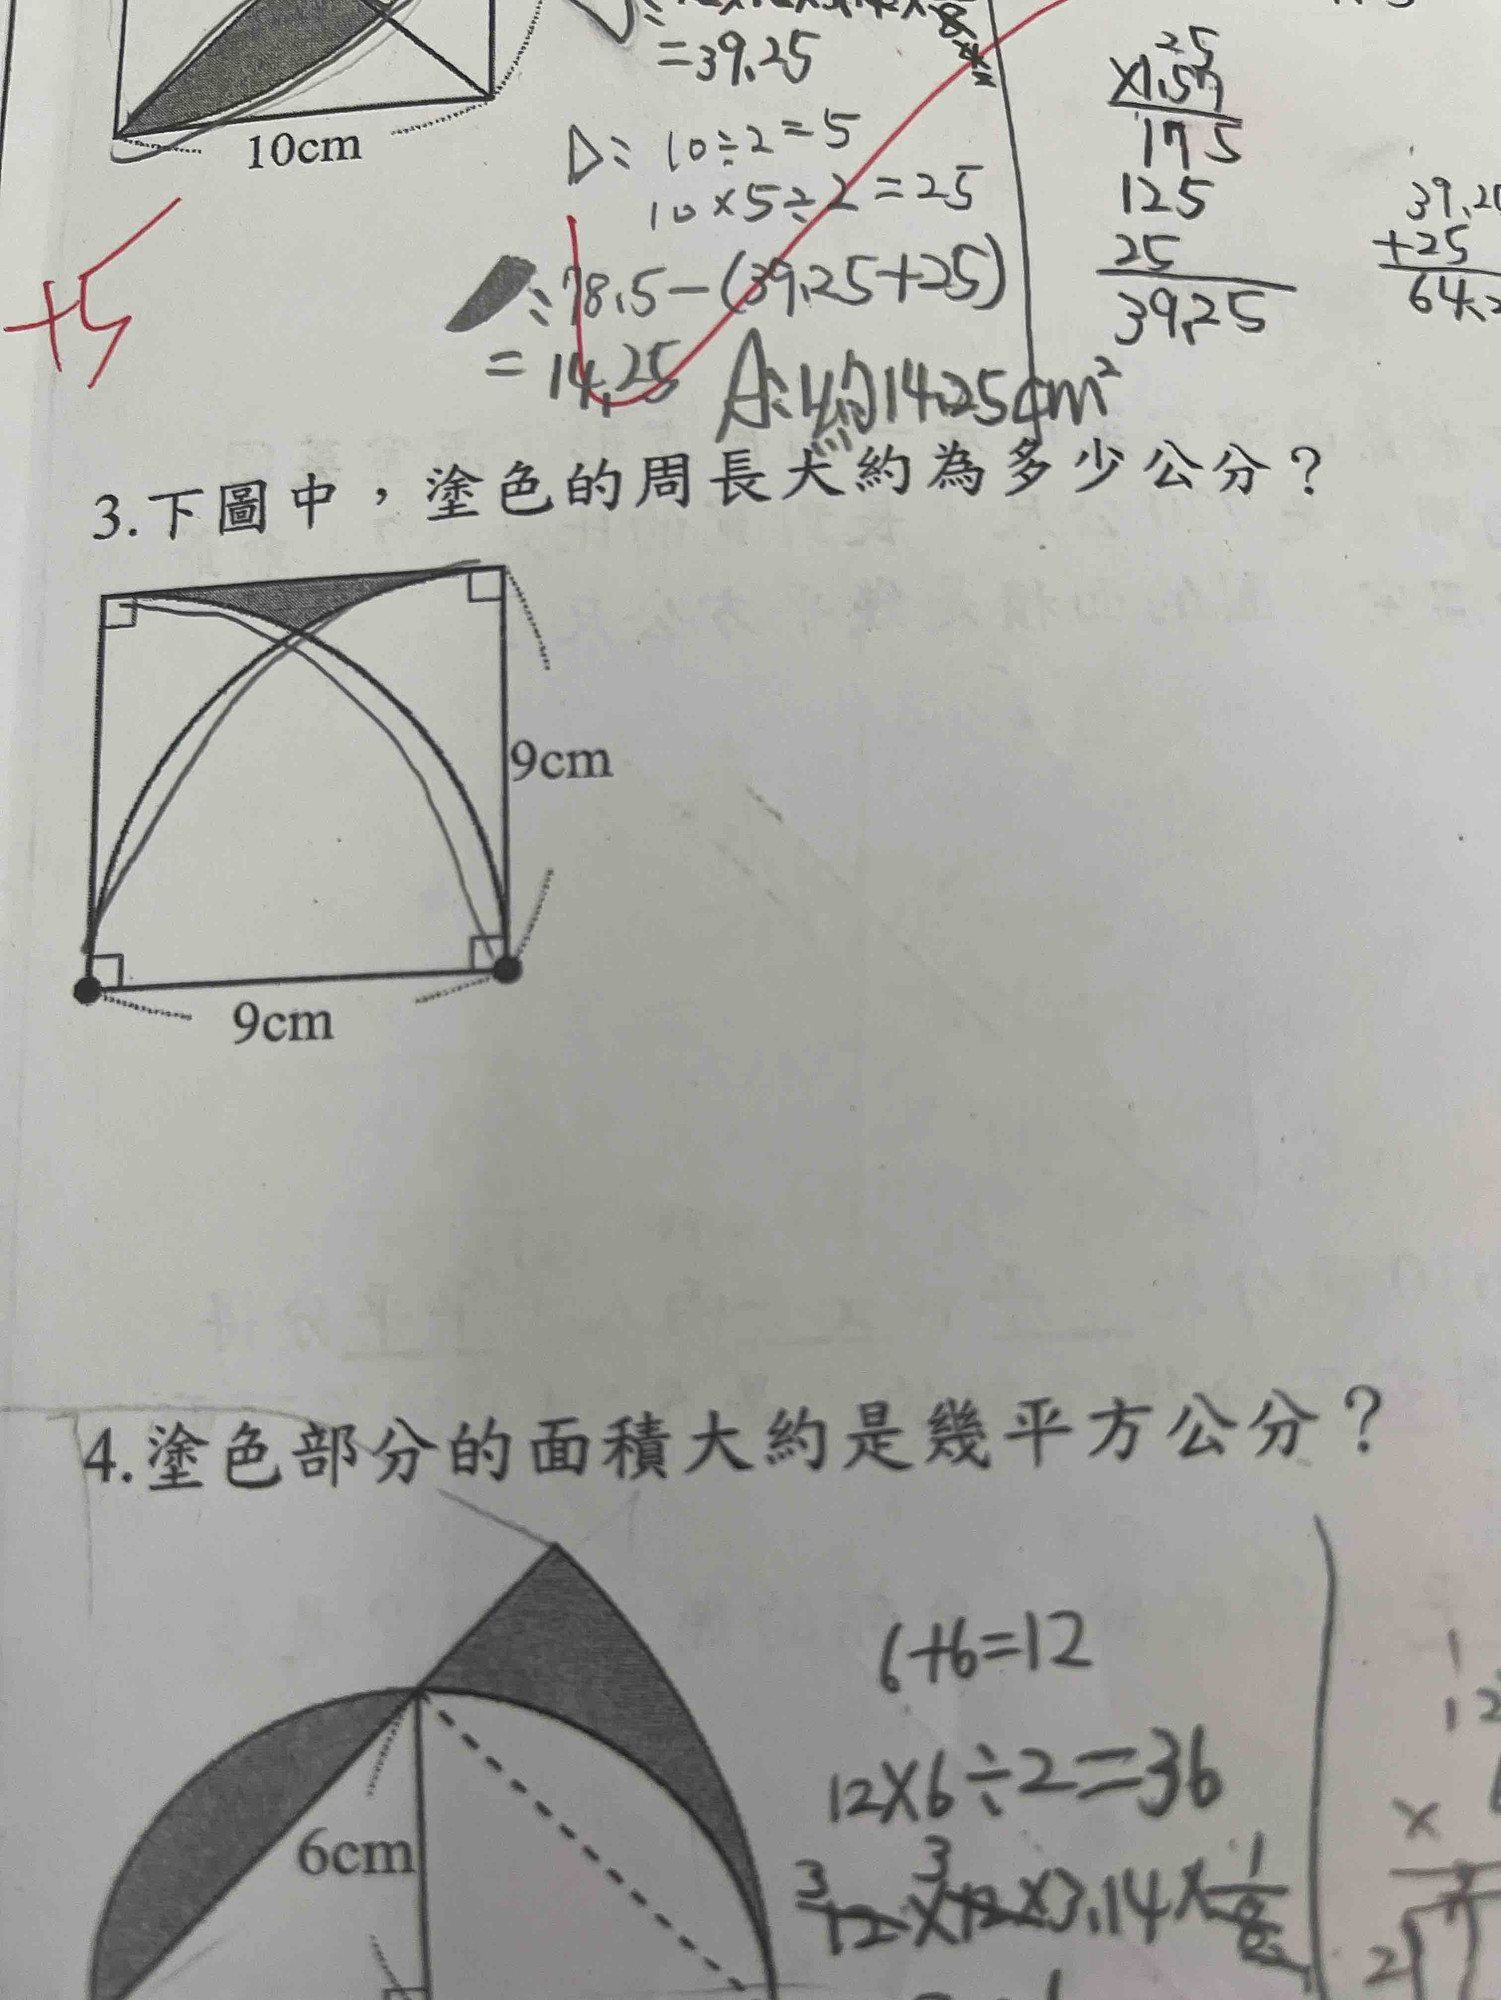 =39.25
10cm
△: 10÷2=5
10×5÷2=25
: 78.5-(39.25+25)
=14.25 A:約14.25cm²
+5
25
×1.57
175
125
25
39.25
+25
3.下圖中，塗色的周長大約為多少公分？
9cm
9cm
4.塗色部分的面積大約是幾平方公分？
6cm
6+6=12
12×6÷2=36
3 3
12×12×3.14×1/8